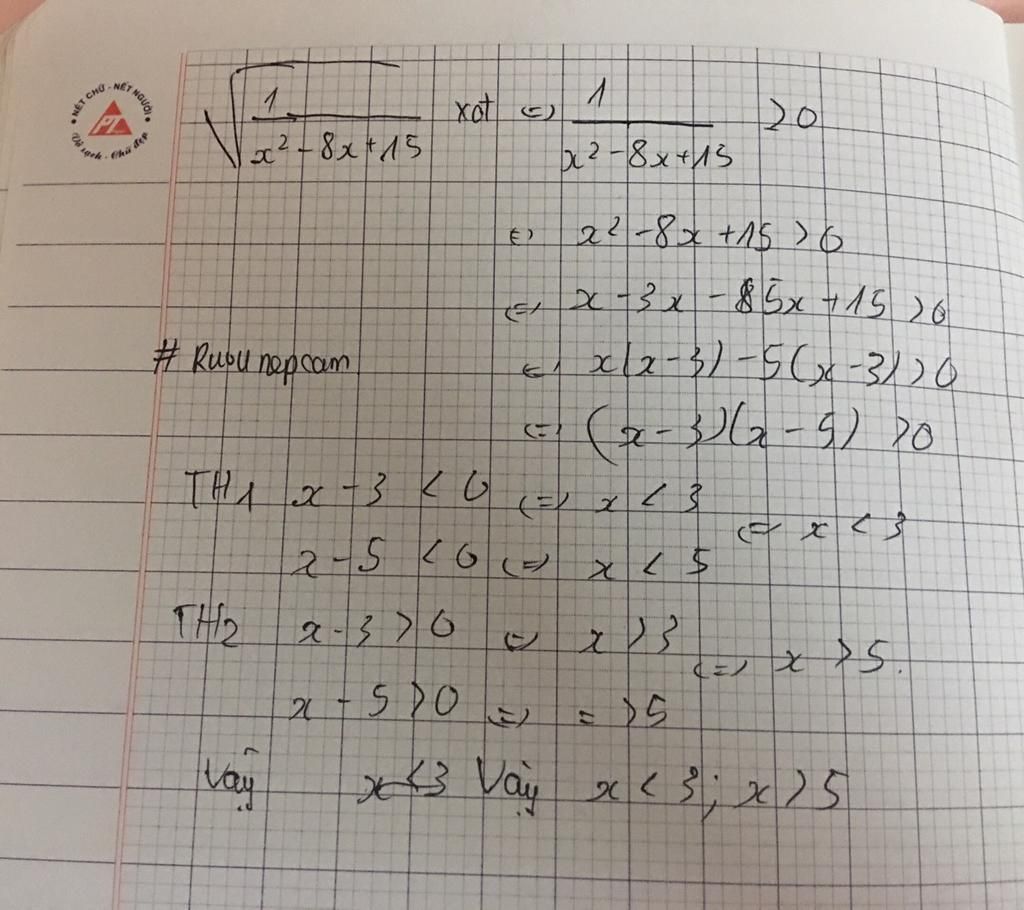 NÉT CHỮ - NẾT NGƯỜI
PL
Vở sạch - Chữ đẹp
√(1/(x² - 8x + 15)) xđ ⇔ 1/(x² - 8x + 15) > 0
⇔ x² - 8x + 15 > 0
⇔ x - 3x - 5x + 15 > 0
# Ruou nep cam ⇔ x(x - 3) - 5(x - 3) > 0
⇔ (x - 3)(x - 5) > 0
TH1 x - 3 < 0 ⇔ x < 3
⇔ x < 3
x - 5 < 0 ⇔ x < 5
TH2 x - 3 > 0 ⇔ x > 3
⇔ x > 5.
x - 5 > 0 ⇔ = > 5
Vậy x < 3 Vậy x < 3 ; x > 5